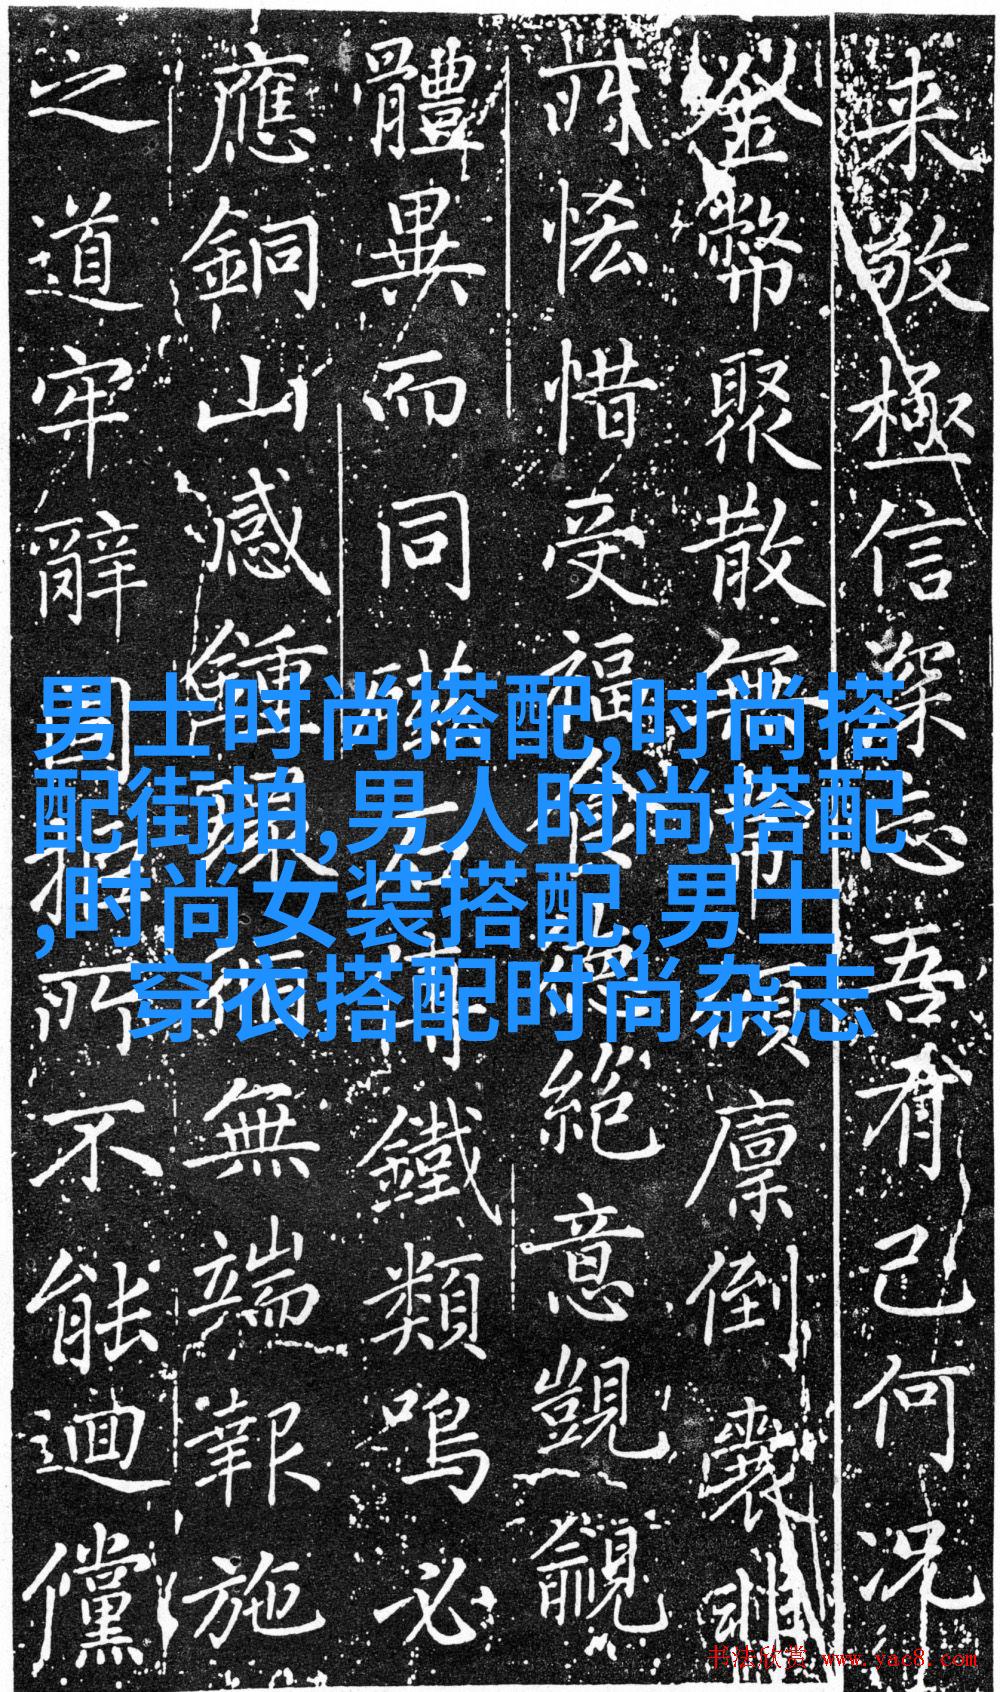 来敬極信深忘吾有己何况
金幣聚散無常須廩倒裳
所悋惜受福食意絕意覬覦
體異而同 鐵類鳴必
應銅山感鍾 無端報施
之道牢辭 所不能迴儻
男士时尚搭配,时尚搭
配街拍,男人时尚搭配
,时尚女装搭配,男士
穿衣搭配时尚杂志
书法欣赏 www.yac8.com